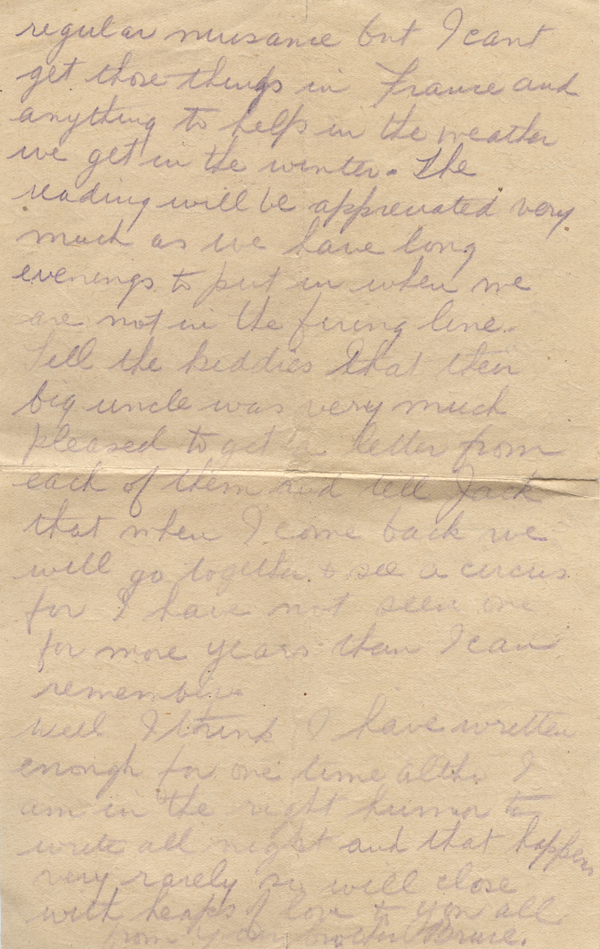 regular nuisance but I cant
get those things in France and
anything to help in the weather
we get in the winter. The
reading will be appreciated very
much as we have long
evenings to put in when we
are not in the firing line.
Tell the kiddies that their
big uncle was very much
pleased to get a letter from
each of them and tell Jack
that when I come back we
will go together to see a circus
for I have not seen one
for more years than I can
remember.
Well I think I have written
enough for one time altho I
am in the right humor to
write all night and that happens
very rarely so will close
with heaps of love to you all
from your brother Bruce.